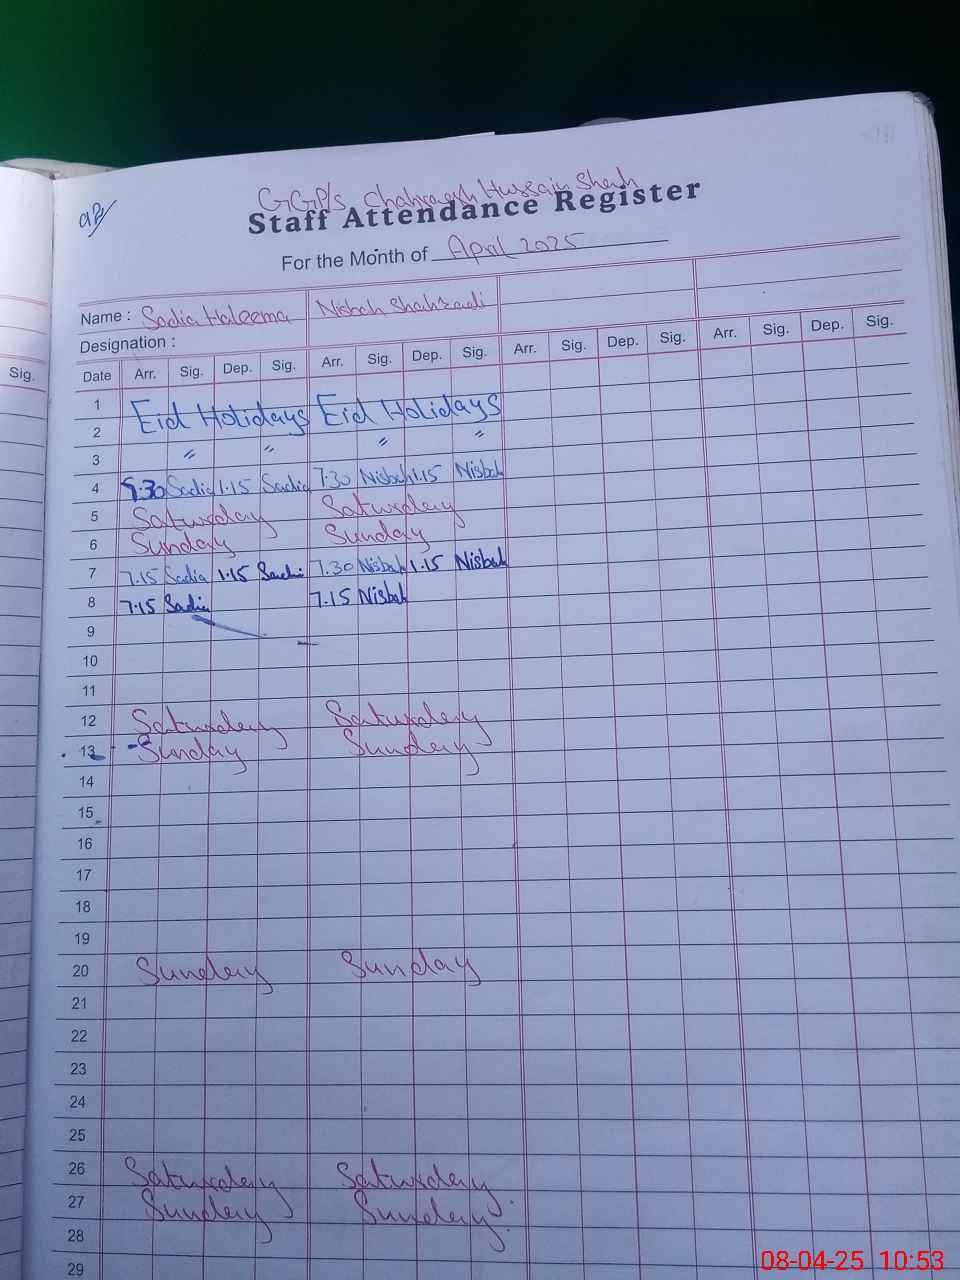 GGP/S Chahragh Hussain Shah
Staff Attendance Register
For the Month of April 2025
Name : Sadia Haleema Nisbah Shahzadi
Designation :
Sig. Date Arr. Sig. Dep. Sig. Arr. Sig. Dep. Sig. Arr. Sig. Dep. Sig. Arr. Sig. Dep. Sig.
1 Eid Holidays Eid Holidays
2
3 " " " "
4 7.30 Sadia 1.15 Sadia 7.30 Nisbah 1.15 Nisbah
5 Saturday Saturday
6 Sunday Sunday
7 7.15 Sadia 1.15 Sadia 7.30 Nisbah 1.15 Nisbah
8 7.15 Sadia 7.15 Nisbah
9
10
11
12 Saturday Saturday
13 Sunday Sunday
14
15
16
17
18
19
20 Sunday Sunday
21
22
23
24
25
26 Saturday Saturday
27 Sunday Sunday
28
29
08-04-25 10:53